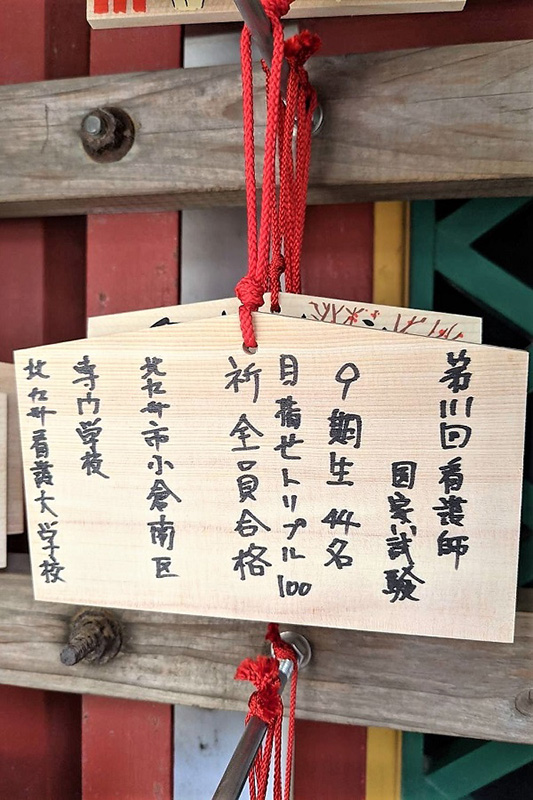 第111回看護師
国家試験
9期生 44名
目指せトリプル100
祈 全員合格
北九州市小倉南区
専門学校
北九州看護大学校